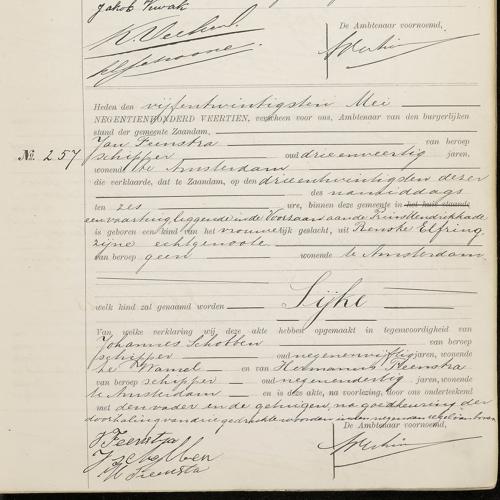 Jakob Kwak
De Ambtenaar voornoemd,
Heden den vijfentwintigsten Mei
NEGENTIENHONDERD VEERTIEN, verscheen voor ons, Ambtenaar van den burgerlijken
stand der gemeente Zaandam,
Jan Feenstra van beroep
No. 257 schipper oud drieenveertig jaren,
wonende te Amsterdam
die verklaarde, dat te Zaandam, op den drieentwintigsten dezer
des namiddags
ten zes ure, binnen deze gemeente in het huis staande
een vaartuig liggende in de Voorzaan aan de Prins Hendrikkade
is geboren een kind van het vrouwelijk geslacht, uit Renske Elfring
zijne echtgenoote
van beroep geen wonende te Amsterdam
welk kind zal genaamd worden Sijke
Van welke verklaring wij deze akte hebben opgemaakt in tegenwoordigheid van
Johannes Scholten van beroep
schipper oud negenenvijftig jaren, wonende
te Wamel en van Hermannus Feenstra
van beroep schipper oud negenendertig jaren, wonende
te Amsterdam en is deze akte, na voorlezing, door ons onderteekend
met den vader en de getuigen, na goedkeuring der
doorhaling van drie gedrukte woorden in den
De Ambtenaar voornoemd,
J Feenstra
J Scholten
H Feenstra